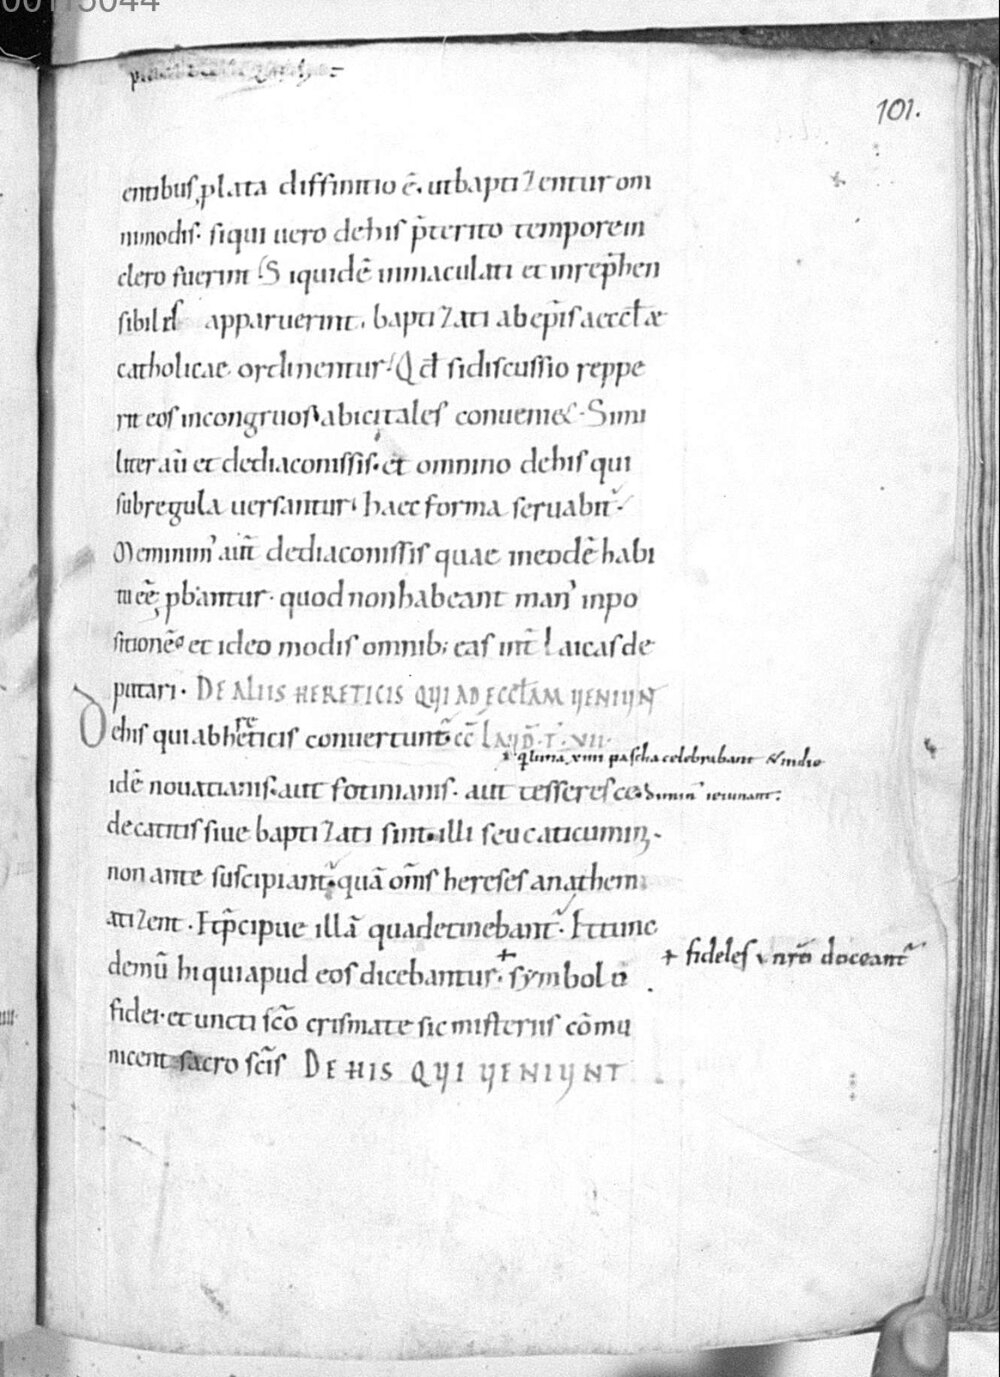 101.
entibus, plata diffinitio ē. ut baptizentur om
nimodis. siqui uero dehis p̄terito tempore in
clero fuerint. Siquidē inmaculati et inrep̄hen
sibiles apparuerint. baptizati abep̄is aeccłæ
catholicae ordinentur. Qd̄ si discussio reppe
rit eos incongruos abici tales conuenit. Simi
liter aū et dediaconissis. et omnino dehis qui
subregula uersantur. haec forma seruabit̄.
Meminim' aut̄ dediaconissis quae ineodē habi
tu eē pbantur. quod non habeant man' inpo
sitionē et ideo modis omnib; eas int̄ laicas de
putari. DE ALIIS HERETICIS QUI AD ECCŁAM UENIUNT
Dehis qui ab hereticis conuertunt̄
q luna xiiii pascha celebrabant
idē nouatianis. aut fotinianis. aut tesserescę
decatitis siue baptizati sint. illi seu caticumin
non ante suscipiant̄. quā om̄s hereses anathem
atizent. Et p̄cipue illā qua detinebant̄. Et tunc
demū hi qui apud eos dicebantur. + symbolū
+ fideles nr̄ō doceant̄
fidei. et uncti sc̄o crismate sic misteriis cōmu
nicent sacro sc̄is DE HIS QUI UENIUNT